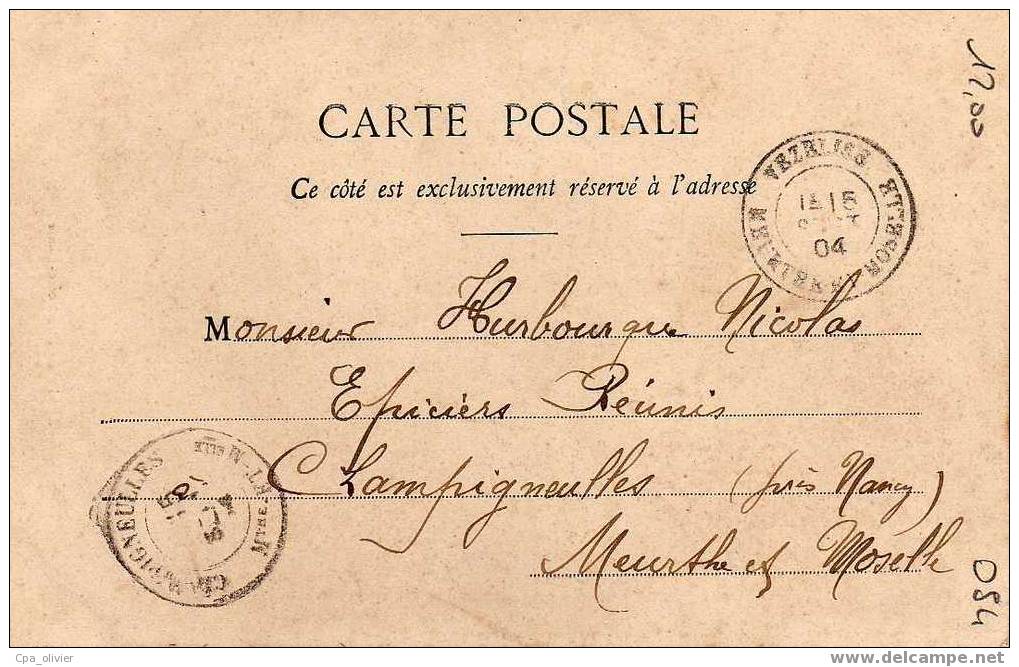 CARTE POSTALE
Ce côté est exclusivement réservé à l'adresse
VEZELISE MEURTHE-ET-MOSELLE
15
SEPT
04
Monsieur Hurbourque Nicolas
Epiciers Réunis
Champigneulles (près Nancy)
Meurthe et Moselle
CHAMPIGNEULLES MTHE-ET-MELLE
17,00
084
Cpa_olivier
www.delcampe.net